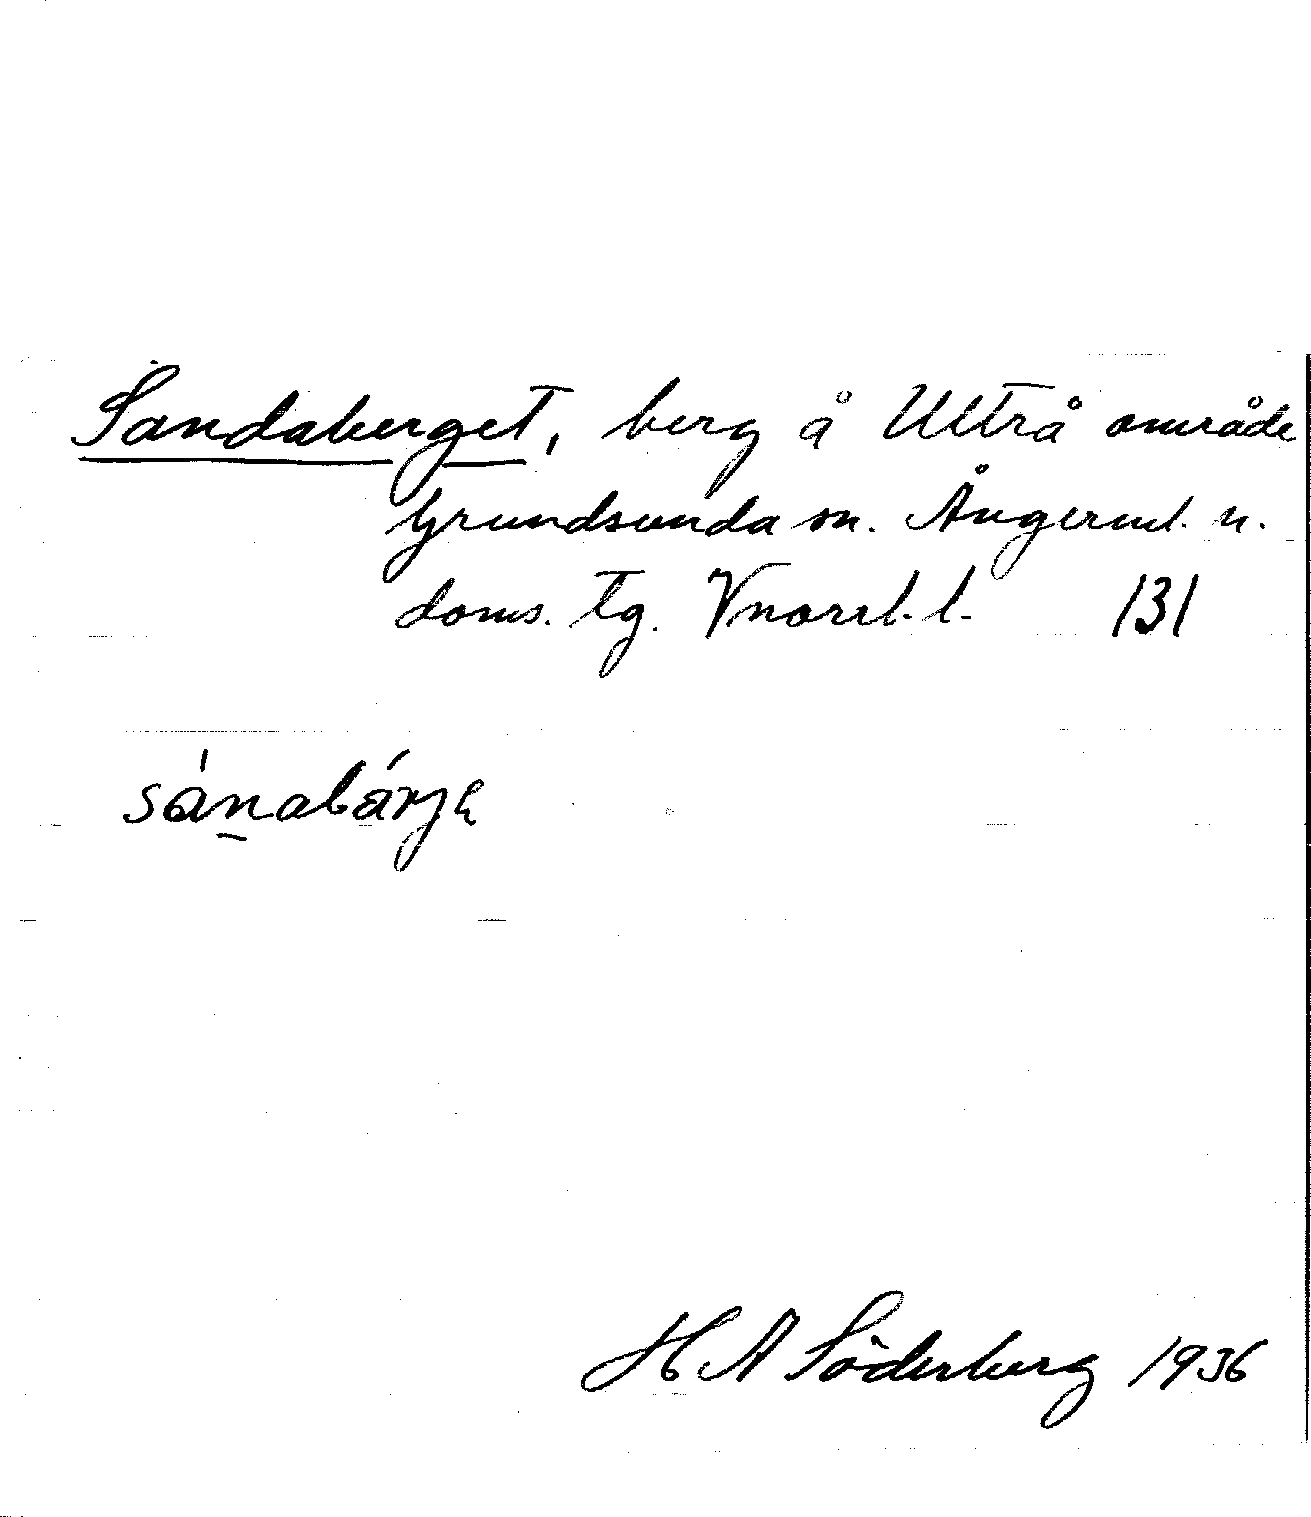 Sandaberget, berg å Ultrå område
Grundsunda sn. Ångerml. n.
doms. tg. Vnorrl. l. 131
H A Söderberg 1936